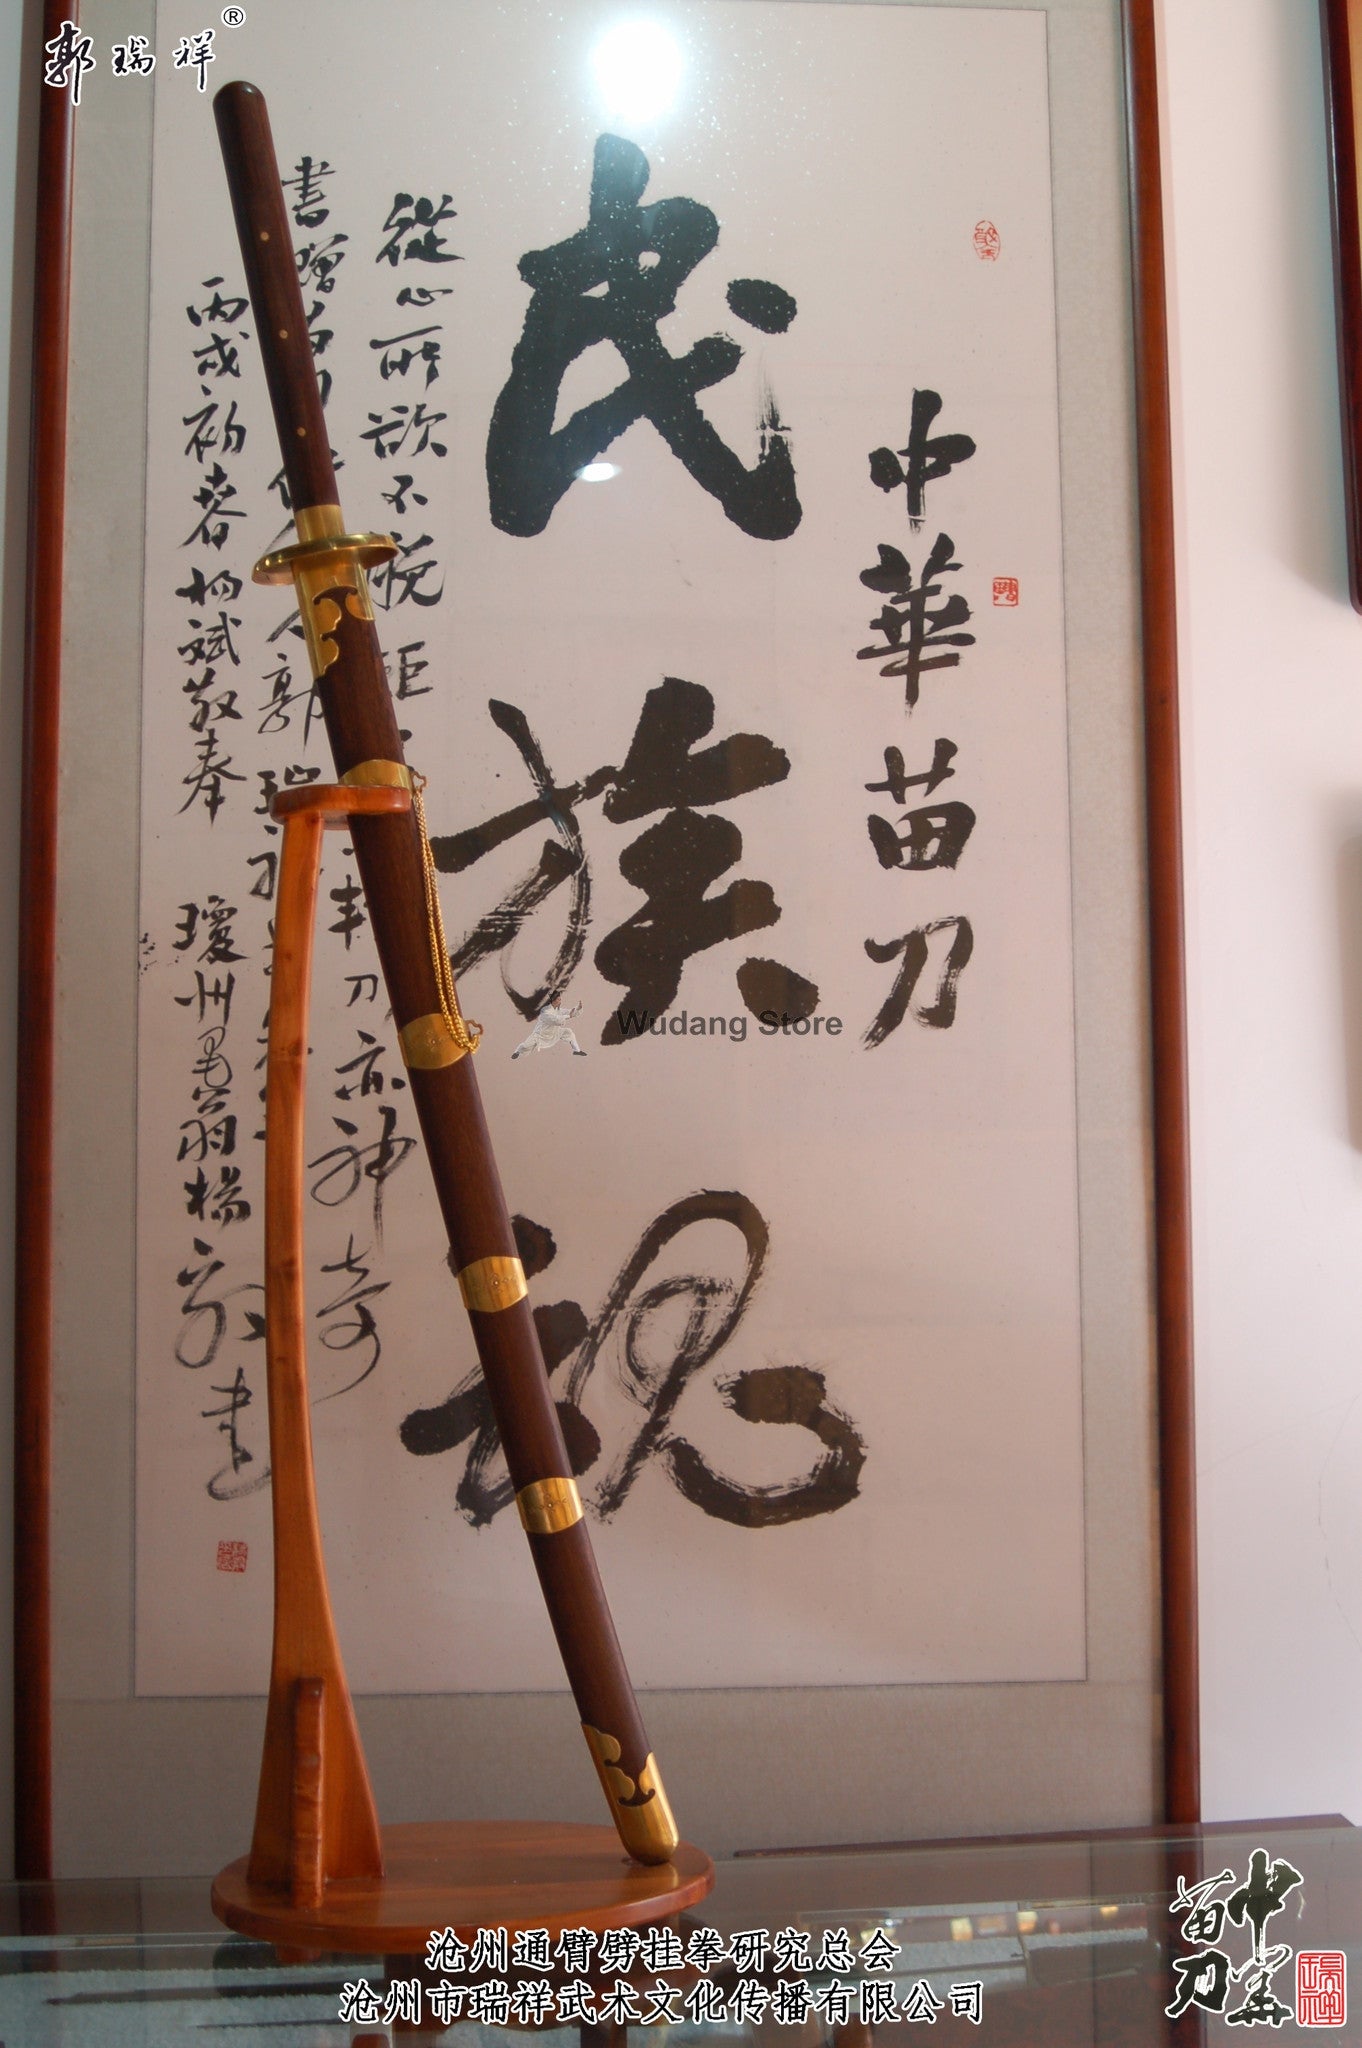 郭瑞祥®
中華苗刀
民族魂
從心所欲不
刀亦神奇
書贈苗刀
郭瑞祥
丙戌初春楊斌敬奉
瓊州墨翁楊
書
Wudang Store
沧州通臂劈挂拳研究总会
沧州市瑞祥武术文化传播有限公司
中華苗刀